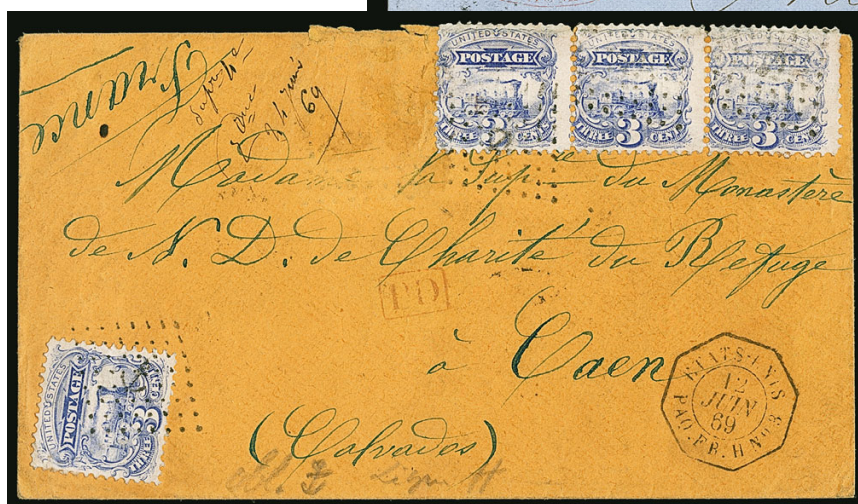 France
69
UNITED STATES
POSTAGE
THREE 3 CENTS
UNITED STATES
POSTAGE
THREE 3 CENTS
UNITED STATES
POSTAGE
THREE 3 CENTS
Madame la Supre du Monastère
de N. D. de Charité du Refuge
PD
à Caen
(Calvados)
ETATS-UNIS
12
JUIN
69
PAQ. FR. H No 3
UNITED STATES
POSTAGE
THREE 3 CENTS
Ligne H